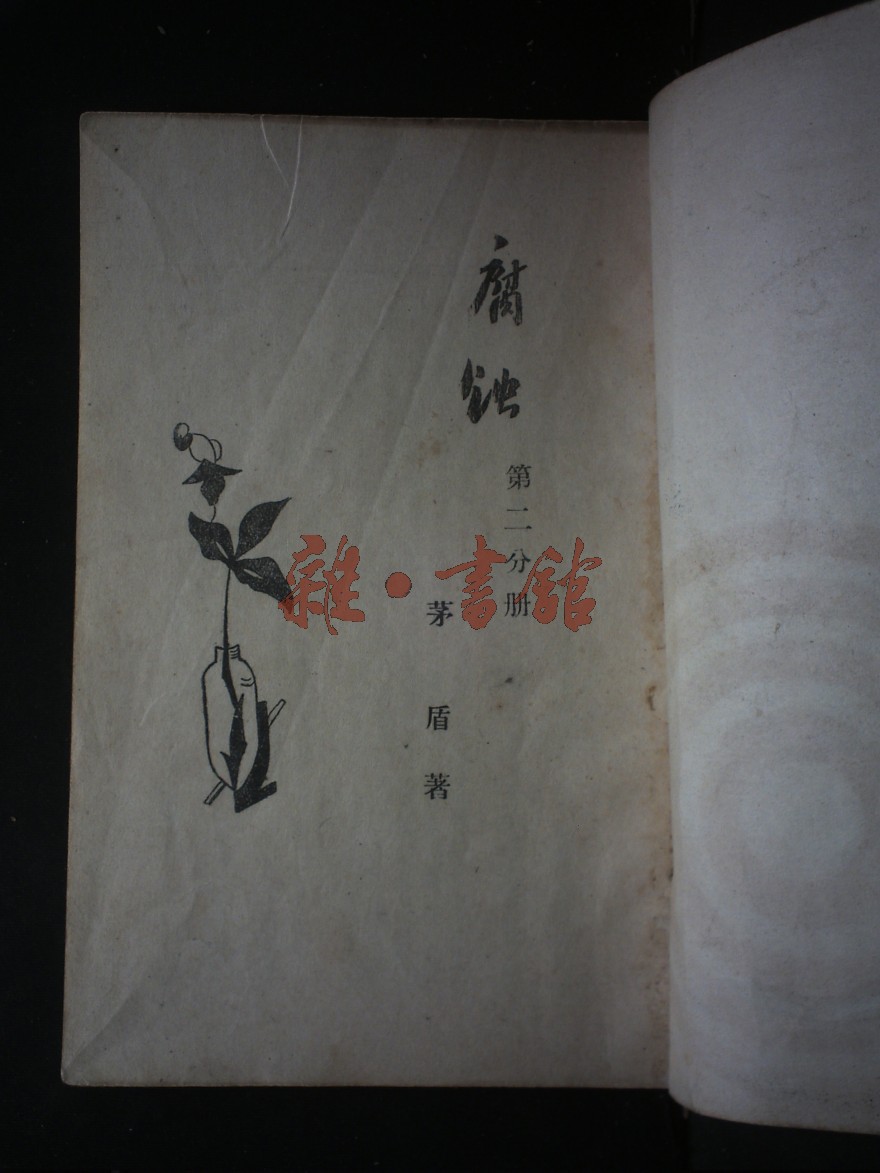 腐蚀
第二分册
茅盾著
雜·書館